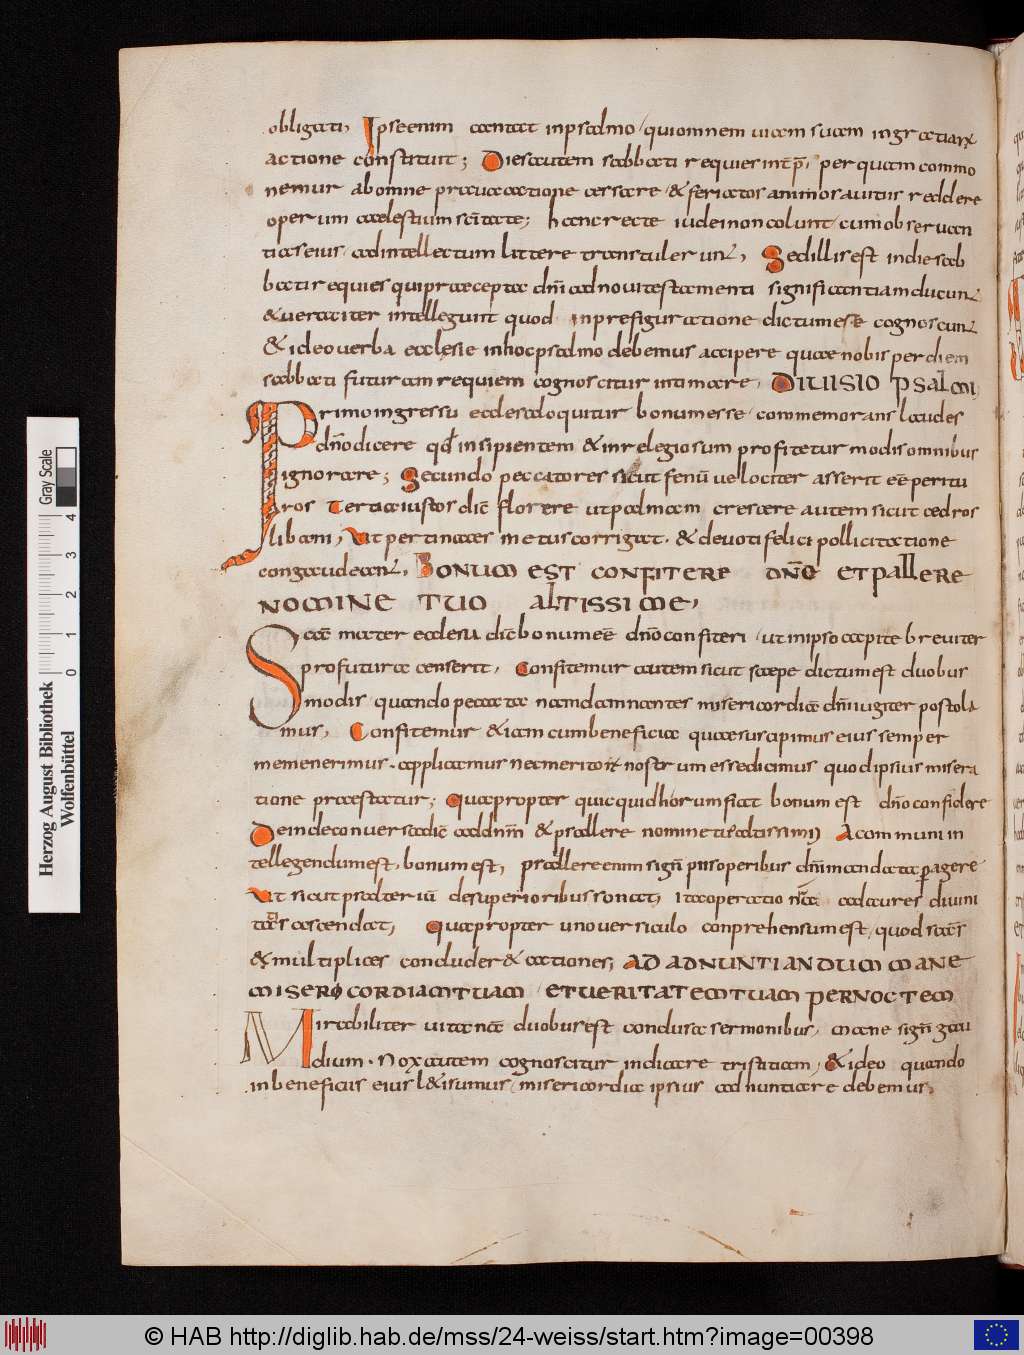 obligati, Ipse enim cantat in psalmo, qui omnem uitam suam in gratiarū
actione constituit; Dies autem sabbati requies intēp, per quam commo
nemur ab omne praua actione cessare, & feriatos animos a uitiis reddere
operum caelestium scītate; hanc recte iudei non colunt, cum obseruan
tias eius, ad intellectum littere transtulerunt, Sed illis est in die sab
bati requies qui praecepta dn̄i ad noui testamenti significantiam ducunt
& ueraciter intellegunt quod in prefiguratione dictum esse cognoscunt
& ideo uerba ecclesie in hoc psalmo debemus accipere quae nobis per diem
sabbati futuram requiem cognoscitur intimare, DIUISIO PSALMI,
Primo ingressu eccles loquitur bonum esse, commemorans laudes
dn̄o dicere qd̄ insipientem & inrelegiosum profitetur modis omnibus
ignorare; Secundo peccatores sicut fenū uelociter asserit eē peritu
ros Tertia iustos dic̄ florere ut palmam crescere autem sicut cedros
libani, Ut pertinaces metus corrigat, & deuoti felici pollicitatione
congaudeant, BONUM EST CONFITERE DN̄O ET PALLERE
NOMINE TUO ALTISSIME,
Scā mater ecclesia dic̄ bonum eē dn̄o confiteri, ut in ipso capite breuiter
profutura censerit, Confitemur autem sicut saepe dictum est duobus
modis quando peccata nam damnantes misericordiā dn̄i iugiter postola
mus, Confitemur & iam cum beneficia quae suscipimus eius semper
memenerimus, applicamus nec meritor̄ nostrum esse dicimus quod ipsius misera
tione praestatur; Quapropter quicquid horum fiat bonum est dn̄o confidere
Deinde conuersa dic̄ ad dnm̄ & psallere nomine tuo altissimi) A communi in
tellegendum est, bonum est, psallere enim sign̄ piis operibus dn̄i mandata peragere
Ut sicut psalteriū de superioribus sonat, Ita operatio nrā ad aures diuini
tatis ascendat, Quapropter uno uersiculo conprehensum est, quod sacs̄
& multiplices concluder& actiones, AD ADNUNTIANDUM MANE
MISERICORDIAM TUAM ET UERITATEM TUAM PER NOCTEM
Mirabiliter uitae nrā duobus est conclusa sermonibus, mane sign̄ gau
dium, Nox autem cognoscitur indicare tristitiam, & ideo quando
in beneficiis eius l&i sumus, misericordia ipsius adnuntiare debemus,
Herzog August Bibliothek
Wolfenbüttel
0 1 2 3 4
Gray Scale
© HAB http://diglib.hab.de/mss/24-weiss/start.htm?image=00398